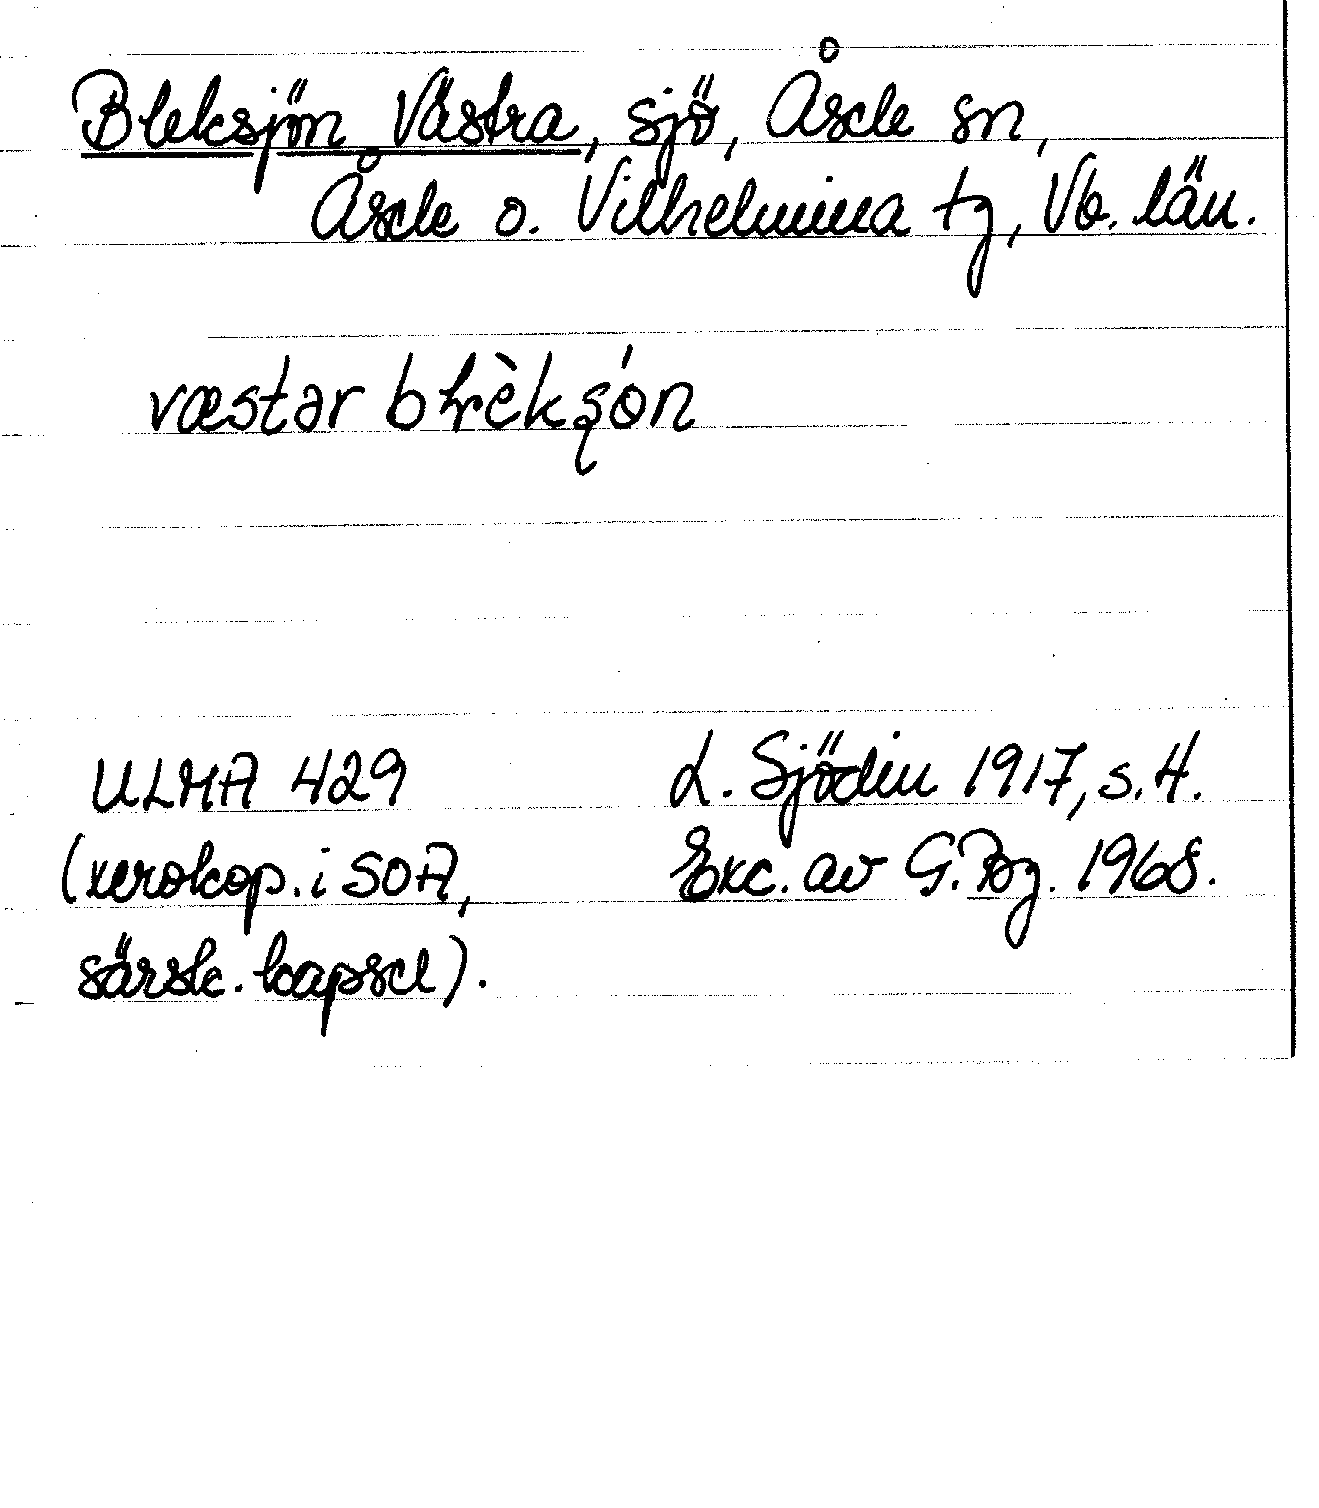 Bleksjön Västra, sjö, Åsele sn,
Åsele o. Vilhelmina tg, Vb. län.
væstər
ULMA 429
L. Sjödin 1917, s. 4.
(xerokop. i SOA,
Exc. av G. Bg. 1968.
särsk. kapsel).